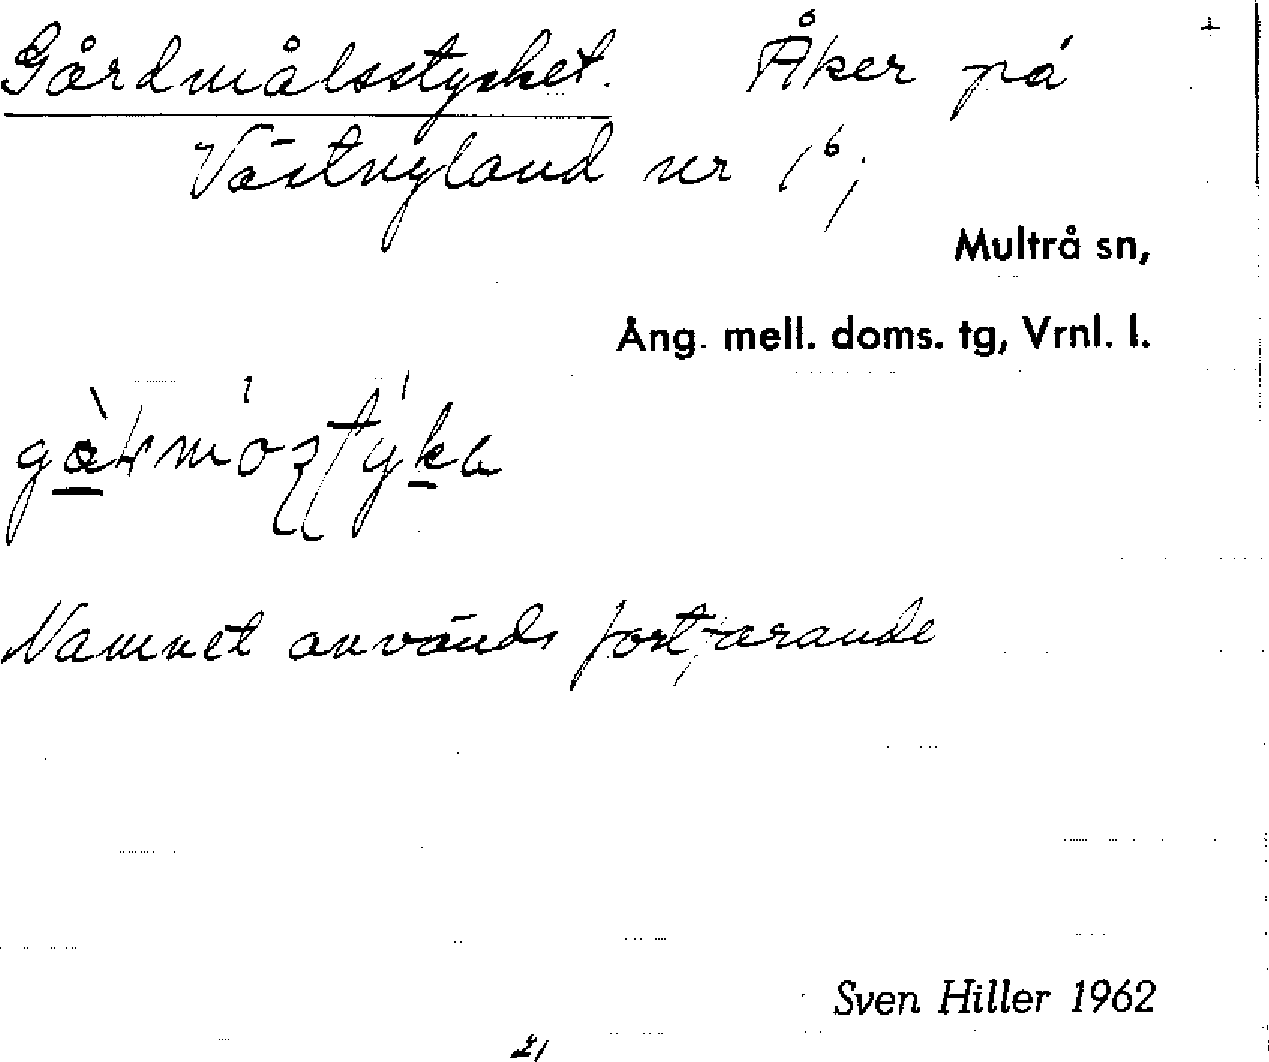 Gårdmålsstycket. Åker på
Västnyland nr 1⁶;
Multrå sn,
Ång. mell. doms. tg, Vrnl. l.
Namnet används fortfarande
Sven Hiller 1962
21